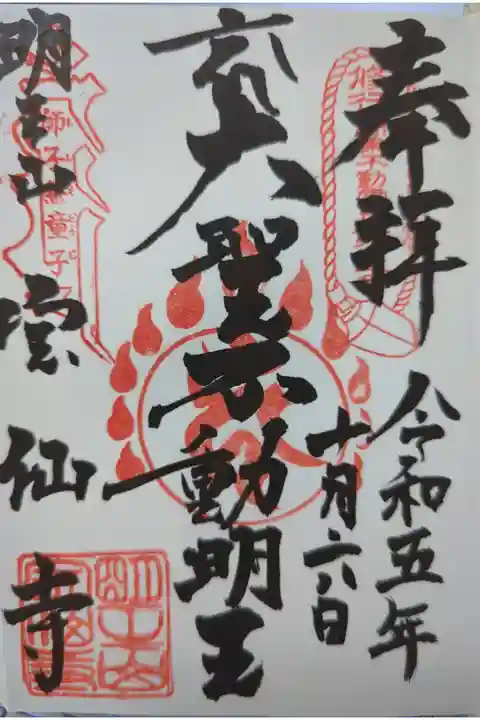 奉拝
令和五年
十月六日
大聖不動明王
明王山
宝仙寺